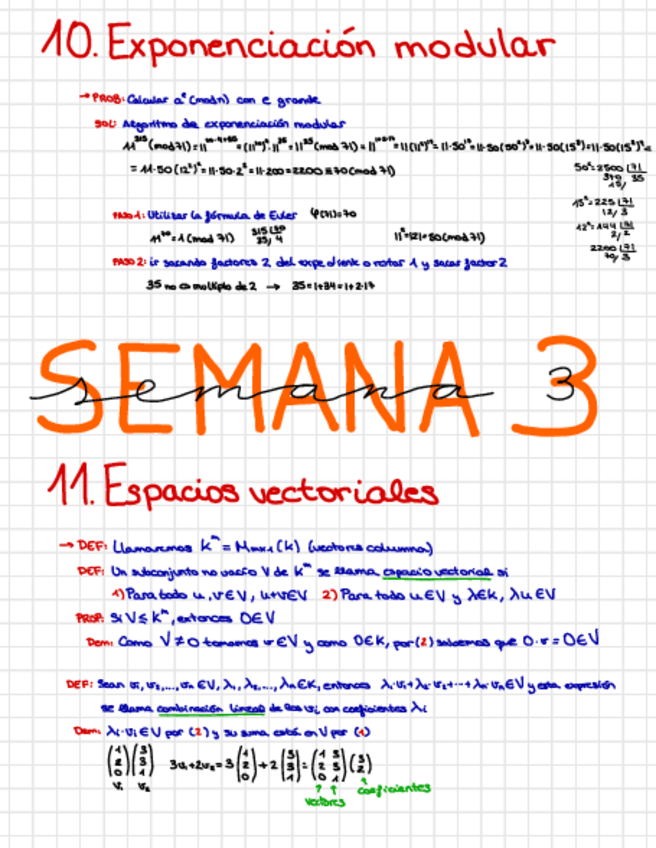 10. Exponenciación modular
→ PROB: Calcular aᵉ (mod n) con e grande
SOL: Algoritmo de exponenciación modular
= 11·50(12²)²=11·50·2²=11·200=2200≡70(mod 71)
50²=2500 |71
370 35
15/
15²=225 |71
12/ 3
12²=144 |71
2/ 2
2200 |71
70/ 3
PASO 1: Utilizar la fórmula de Euler φ(71)=70
11⁷⁰=1 (mod 71) 315 |70
35/ 4
11²=121=50(mod 71)
PASO 2: ir sacando factores 2 del expediente o restar 1 y sacar factor 2
35 no es multiplo de 2 → 35=1+34=1+2·17
SEMANA 3
semana 3
11. Espacios vectoriales
→ DEF: Llamaremos kⁿ = Mₙₓ₁(k) (vectores columna)
DEF: Un subconjunto no vacío V de kⁿ se llama espacio vectorial si
1) Para todo u,v∈V, u+v∈V 2) Para todo u∈V y λ∈k, λu∈V
PROP: Si V≤kⁿ, entonces 0∈V
Dem: Como V≠0 tomamos v∈V y como 0∈K, por (2) sabemos que 0·v=0∈V
DEF: Sean v₁,v₂,...,vₙ∈V, λ₁,λ₂,...,λₙ∈K, entonces λ₁·v₁+λ₂·v₂+···+λₙ·vₙ∈V y esta expresión
se llama combinación lineal de los vᵢ con coeficientes λᵢ
Dem: λᵢ·vᵢ∈V por (2) y su suma está en V por (1)
(1 2 0) (3 3 1) 3v₁+2v₂=3(1 2 0)+2(3 3 1)=(1 3 2 3 0 1)(3 2)
v₁ v₂
↑ ↑ ↑ coeficientes
vectores